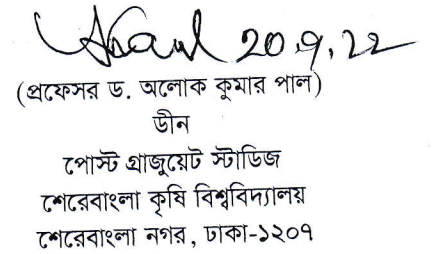 20.9.22
(প্রফেসর ড. অলোক কুমার পাল)
ডীন
পোস্ট গ্রাজুয়েট স্টাডিজ
শেরেবাংলা কৃষি বিশ্ববিদ্যালয়
শেরেবাংলা নগর, ঢাকা-১২০৭